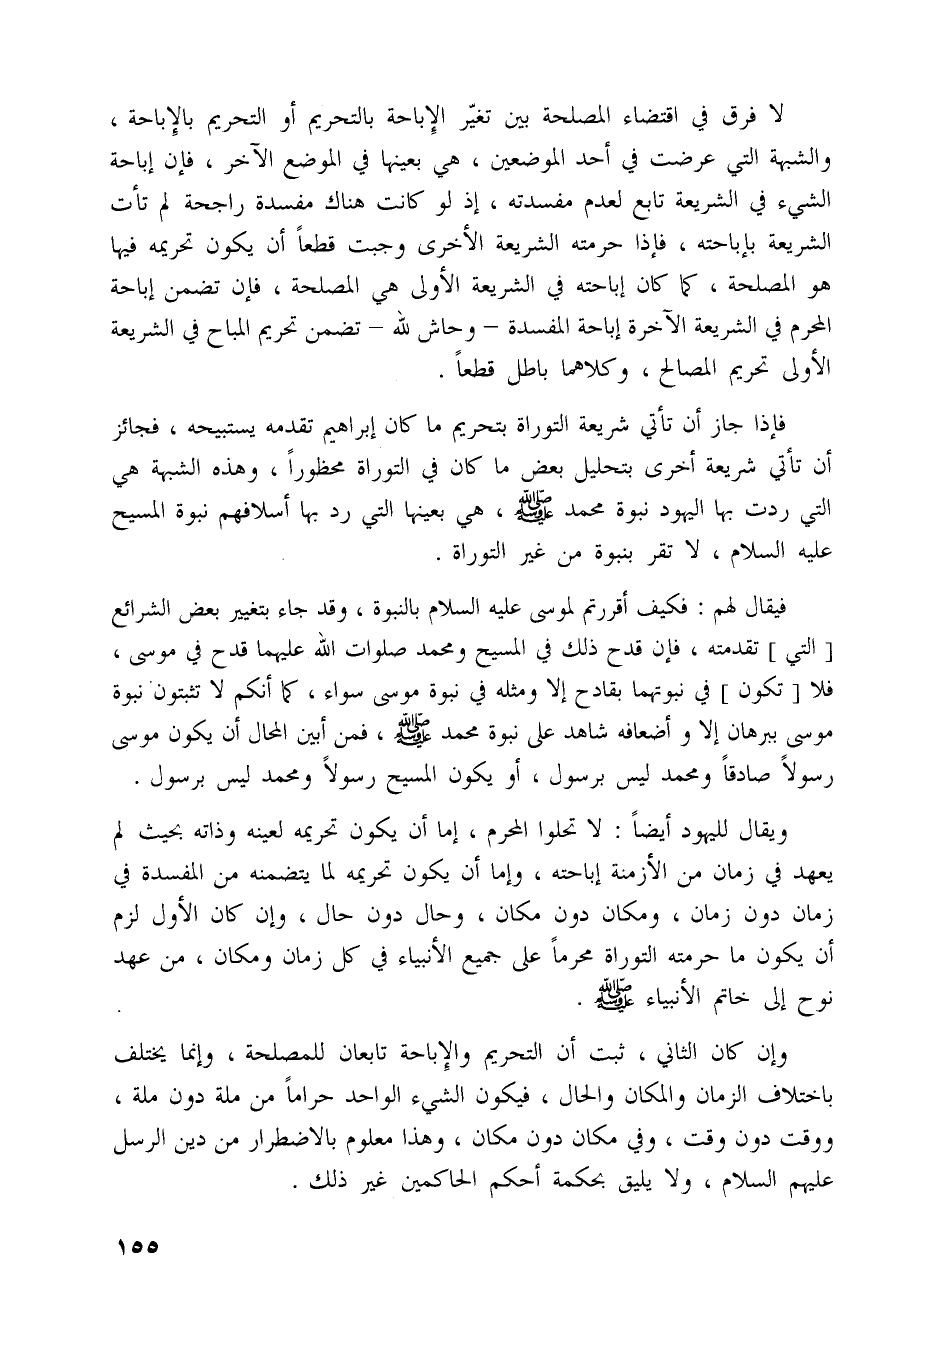 لا فرق في اقتضاء المصلحة بين تغيّر الإباحة بالتحريم أو التحريم بالإباحة ،
والشبهة التي عرضت في أحد الموضعين ، هي بعينها في الموضع الآخر ، فإن إباحة
الشيء في الشريعة تابع لعدم مفسدته ، إذ لو كانت هناك مفسدة راجحة لم تأت
الشريعة بإباحته ، فإذا حرمته الشريعة الأخرى وجبت قطعاً أن يكون تحريمه فيها
هو المصلحة ، كما كان إباحته في الشريعة الأولى هي المصلحة ، فإن تضمن إباحة
المحرم في الشريعة الآخرة إباحة المفسدة – وحاش لله – تضمن تحريم المباح في الشريعة
الأولى تحريم المصالح ، وكلاهما باطل قطعاً .
فإذا جاز أن تأتي شريعة التوراة بتحريم ما كان إبراهيم تقدمه يستبيحه ، فجائز
أن تأتي شريعة أخرى بتحليل بعض ما كان في التوراة محظوراً ، وهذه الشبهة هي
التي ردت بها اليهود نبوة محمد ﷺ ، هي بعينها التي رد بها أسلافهم نبوة المسيح
عليه السلام ، لا تقر بنبوة من غير التوراة .
فيقال لهم : فكيف أقررتم لموسى عليه السلام بالنبوة ، وقد جاء بتغيير بعض الشرائع
[ التي ] تقدمته ، فإن قدح ذلك في المسيح ومحمد صلوات الله عليهما قدح في موسى ،
فلا [ تكون ] في نبوتهما بقادح إلا ومثله في نبوة موسى سواء ، كما أنكم لا تثبتون نبوة
موسى ببرهان إلا و أضعافه شاهد على نبوة محمد ﷺ ، فمن أبين المحال أن يكون موسى
رسولاً صادقاً ومحمد ليس برسول ، أو يكون المسيح رسولاً ومحمد ليس برسول .
ويقال لليهود أيضاً : لا تحلوا المحرم ، إما أن يكون تحريمه لعينه وذاته بحيث لم
يعهد في زمان من الأزمنة إباحته ، وإما أن يكون تحريمه لما يتضمنه من المفسدة في
زمان دون زمان ، ومكان دون مكان ، وحال دون حال ، وإن كان الأول لزم
أن يكون ما حرمته التوراة محرماً على جميع الأنبياء في كل زمان ومكان ، من عهد
نوح إلى خاتم الأنبياء ﷺ .
وإن كان الثاني ، ثبت أن التحريم والإباحة تابعان للمصلحة ، وإنما يختلف
باختلاف الزمان والمكان والحال ، فيكون الشيء الواحد حراماً من ملة دون ملة ،
ووقت دون وقت ، وفي مكان دون مكان ، وهذا معلوم بالاضطرار من دين الرسل
عليهم السلام ، ولا يليق بحكمة أحكم الحاكمين غير ذلك .
١٥٥